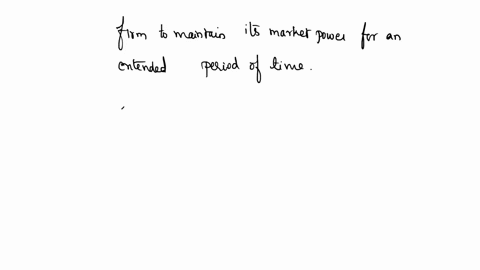 firm to maintain its market power for an
entended period of time.